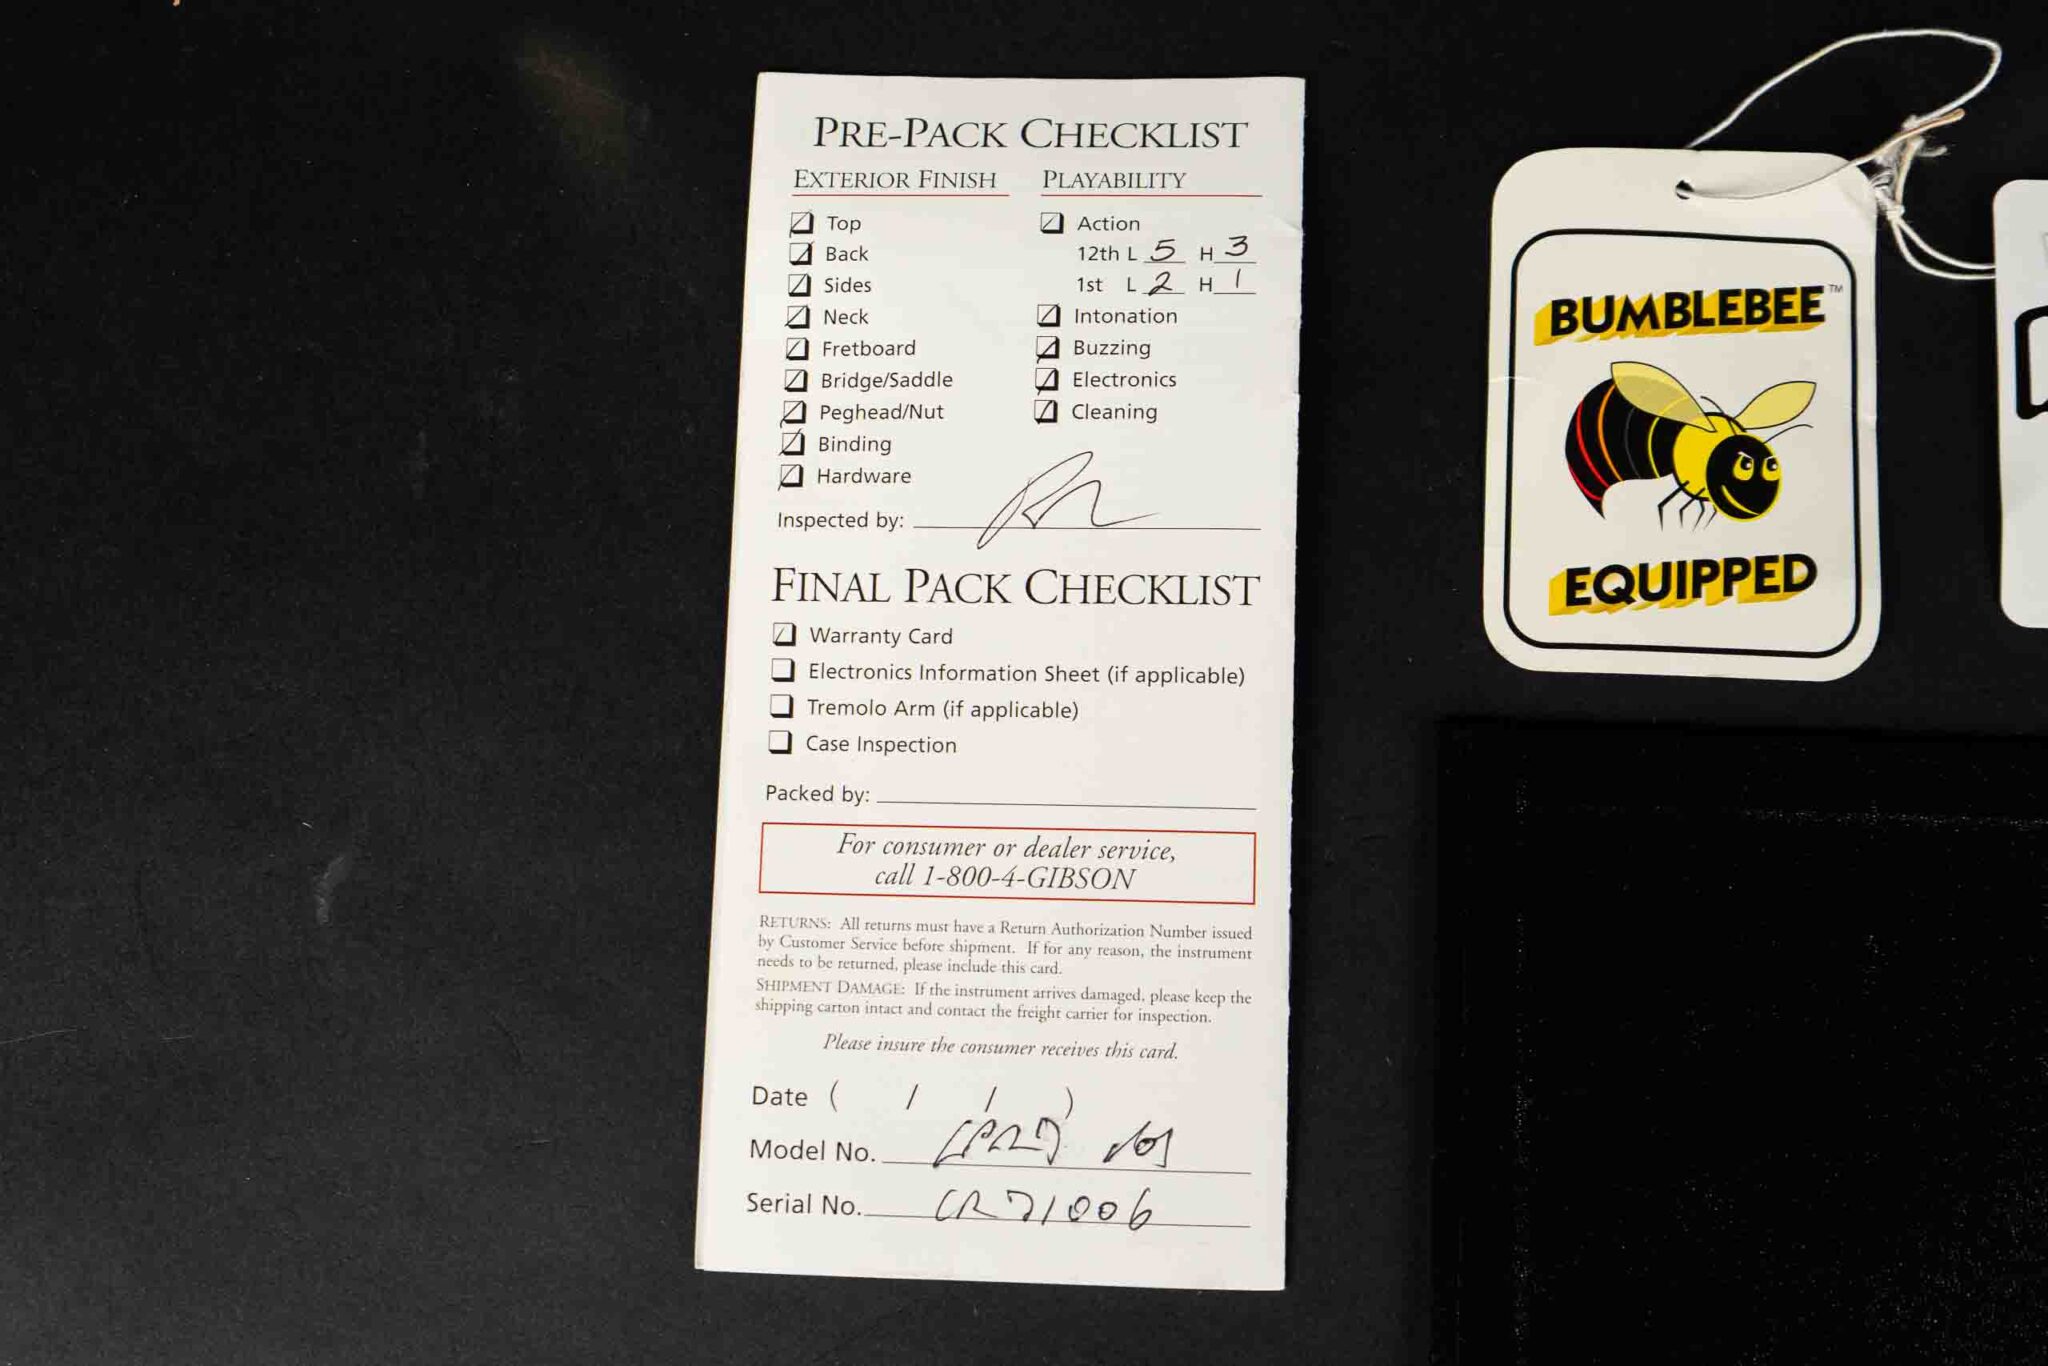 PRE-PACK CHECKLIST
EXTERIOR FINISH
Top
Back
Sides
Neck
Fretboard
Bridge/Saddle
Peghead/Nut
Binding
Hardware
PLAYABILITY
Action
12th L 5 H 3
1st L 2 H 1
Intonation
Buzzing
Electronics
Cleaning
Inspected by:
FINAL PACK CHECKLIST
Warranty Card
Electronics Information Sheet (if applicable)
Tremolo Arm (if applicable)
Case Inspection
Packed by:
For consumer or dealer service,
call 1-800-4-GIBSON
RETURNS: All returns must have a Return Authorization Number issued
by Customer Service before shipment. If for any reason, the instrument
needs to be returned, please include this card.
SHIPMENT DAMAGE: If the instrument arrives damaged, please keep the
shipping carton intact and contact the freight carrier for inspection.
Please insure the consumer receives this card.
Date ( / / )
Model No.
Serial No. CR71006
BUMBLEBEE™
EQUIPPED